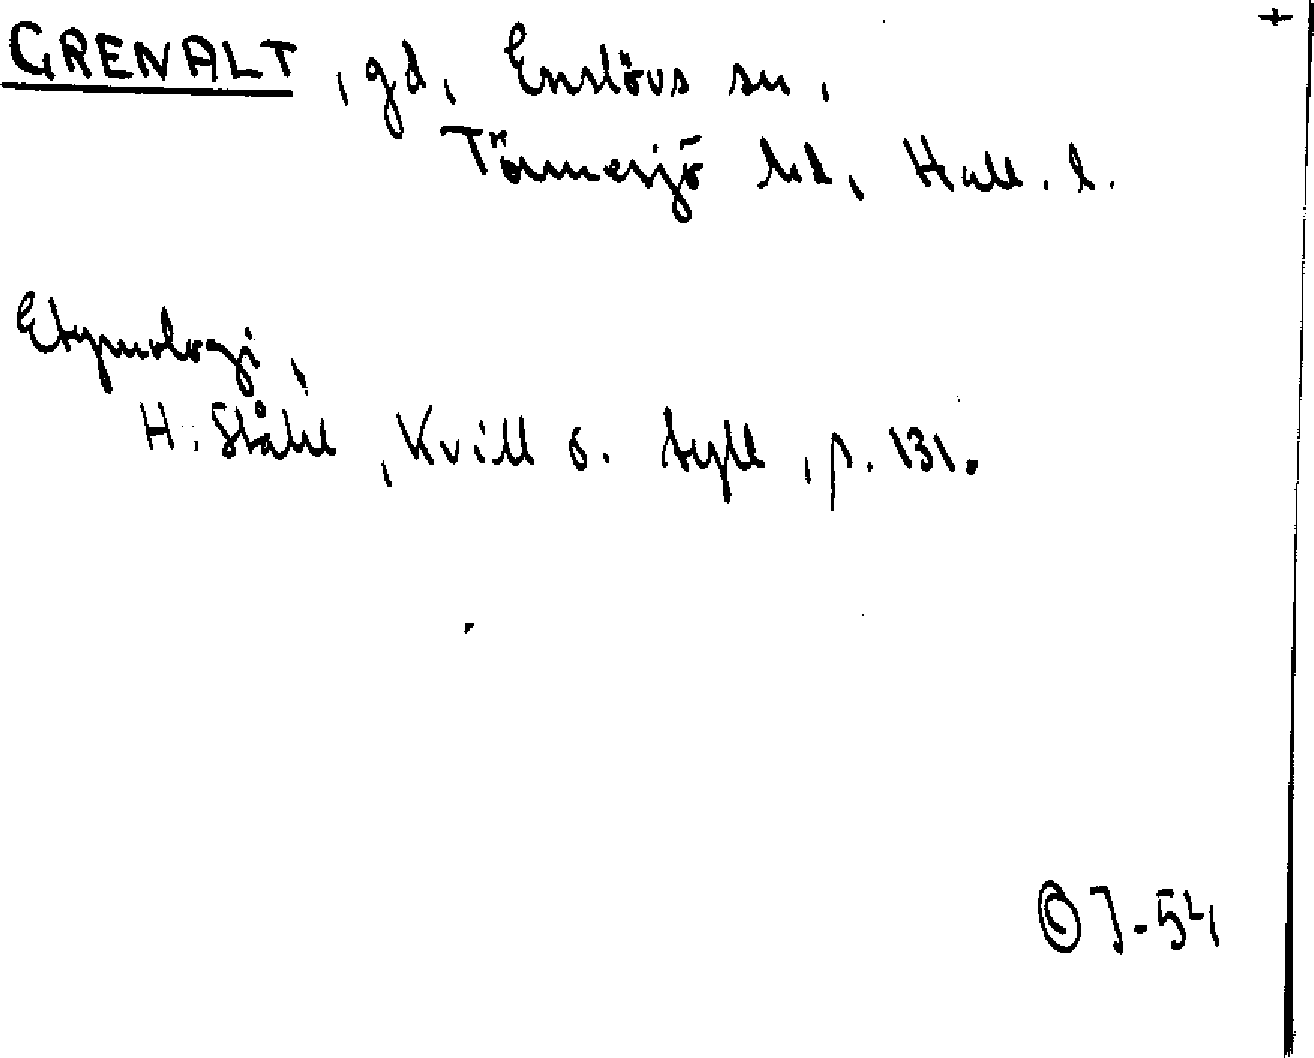 +
GRENALT, gd, Enslövs sn,
Tönnersjö hd, Hall. l.
Etymologi,
H. Ståhl, Kvill o. tyll, p. 131.
© 7-54